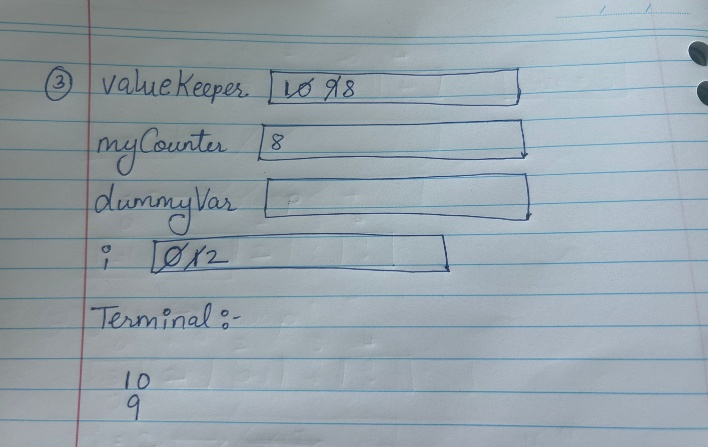 ③ valueKeeper 10 9 8
myCounter 8
dummyVar
i 0 1 2
Terminal :-
10
9